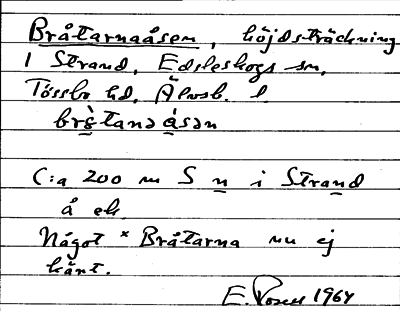 Bråtarnaåsen, höjdsträckning
i Strand, Edsleskogs sn,
Tössbo hd, Älvsb. l.
brɔ̀tanə ásən
C:a 200 m S n i Strand
å ek.
Något * Bråtarna nu ej
känt.
E. Rosell 1964